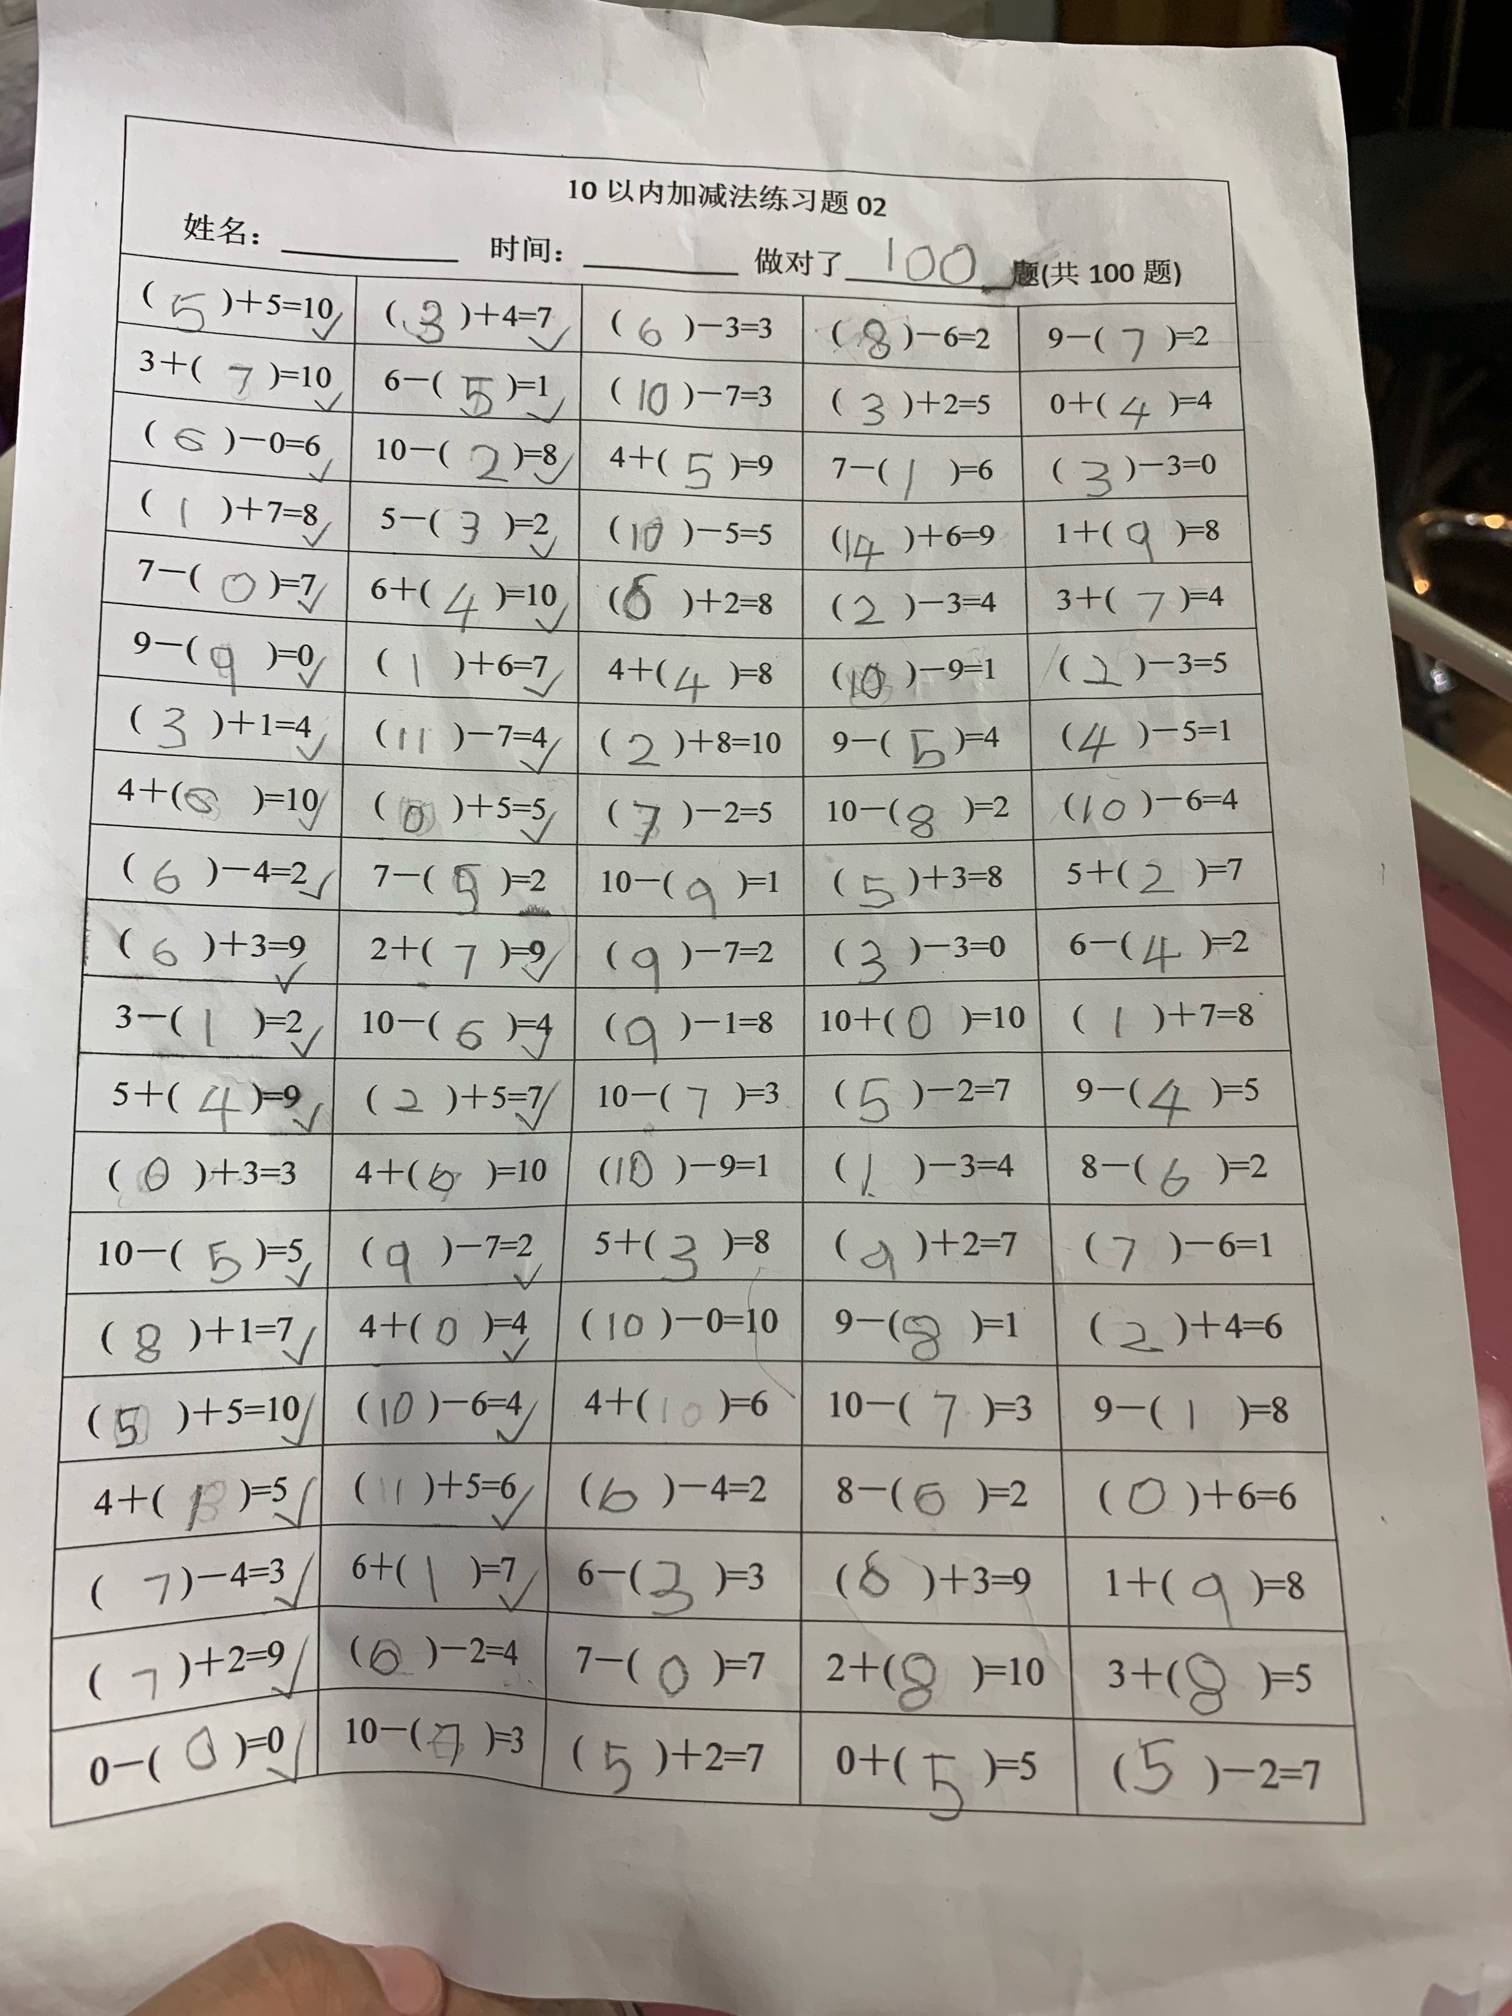 10 以内加减法练习题 02
姓名: 时间: 做对了 100 题(共 100 题)
( 5 )+5=10 ( 3 )+4=7 ( 6 )-3=3 ( 8 )-6=2 9-( 7 )=2
3+( 7 )=10 6-( 5 )=1 ( 10 )-7=3 ( 3 )+2=5 0+( 4 )=4
( 6 )-0=6 10-( 2 )=8 4+( 5 )=9 7-( 1 )=6 ( 3 )-3=0
( 1 )+7=8 5-( 3 )=2 ( 10 )-5=5 ( 14 )+6=9 1+( 9 )=8
7-( 0 )=7 6+( 4 )=10 ( 6 )+2=8 ( 2 )-3=4 3+( 7 )=4
9-( 9 )=0 ( 1 )+6=7 4+( 4 )=8 ( 10 )-9=1 ( 2 )-3=5
( 3 )+1=4 ( 11 )-7=4 ( 2 )+8=10 9-( 5 )=4 ( 4 )-5=1
4+( 6 )=10 ( 0 )+5=5 ( 7 )-2=5 10-( 8 )=2 ( 10 )-6=4
( 6 )-4=2 7-( 5 )=2 10-( 9 )=1 ( 5 )+3=8 5+( 2 )=7
( 6 )+3=9 2+( 7 )=9 ( 9 )-7=2 ( 3 )-3=0 6-( 4 )=2
3-( 1 )=2 10-( 6 )=4 ( 9 )-1=8 10+( 0 )=10 ( 1 )+7=8
5+( 4 )=9 ( 2 )+5=7 10-( 7 )=3 ( 5 )-2=7 9-( 4 )=5
( 0 )+3=3 4+( 6 )=10 ( 10 )-9=1 ( 1 )-3=4 8-( 6 )=2
10-( 5 )=5 ( 9 )-7=2 5+( 3 )=8 ( 9 )+2=7 ( 7 )-6=1
( 8 )+1=7 4+( 0 )=4 ( 10 )-0=10 9-( 8 )=1 ( 2 )+4=6
( 5 )+5=10 ( 10 )-6=4 4+( 10 )=6 10-( 7 )=3 9-( 1 )=8
4+( )=5 ( 11 )+5=6 ( 6 )-4=2 8-( 6 )=2 ( 0 )+6=6
( 7 )-4=3 6+( 1 )=7 6-( 3 )=3 ( 6 )+3=9 1+( 9 )=8
( 7 )+2=9 ( 6 )-2=4 7-( 0 )=7 2+( 8 )=10 3+( 8 )=5
0-( 0 )=0 10-( 7 )=3 ( 5 )+2=7 0+( 5 )=5 ( 5 )-2=7